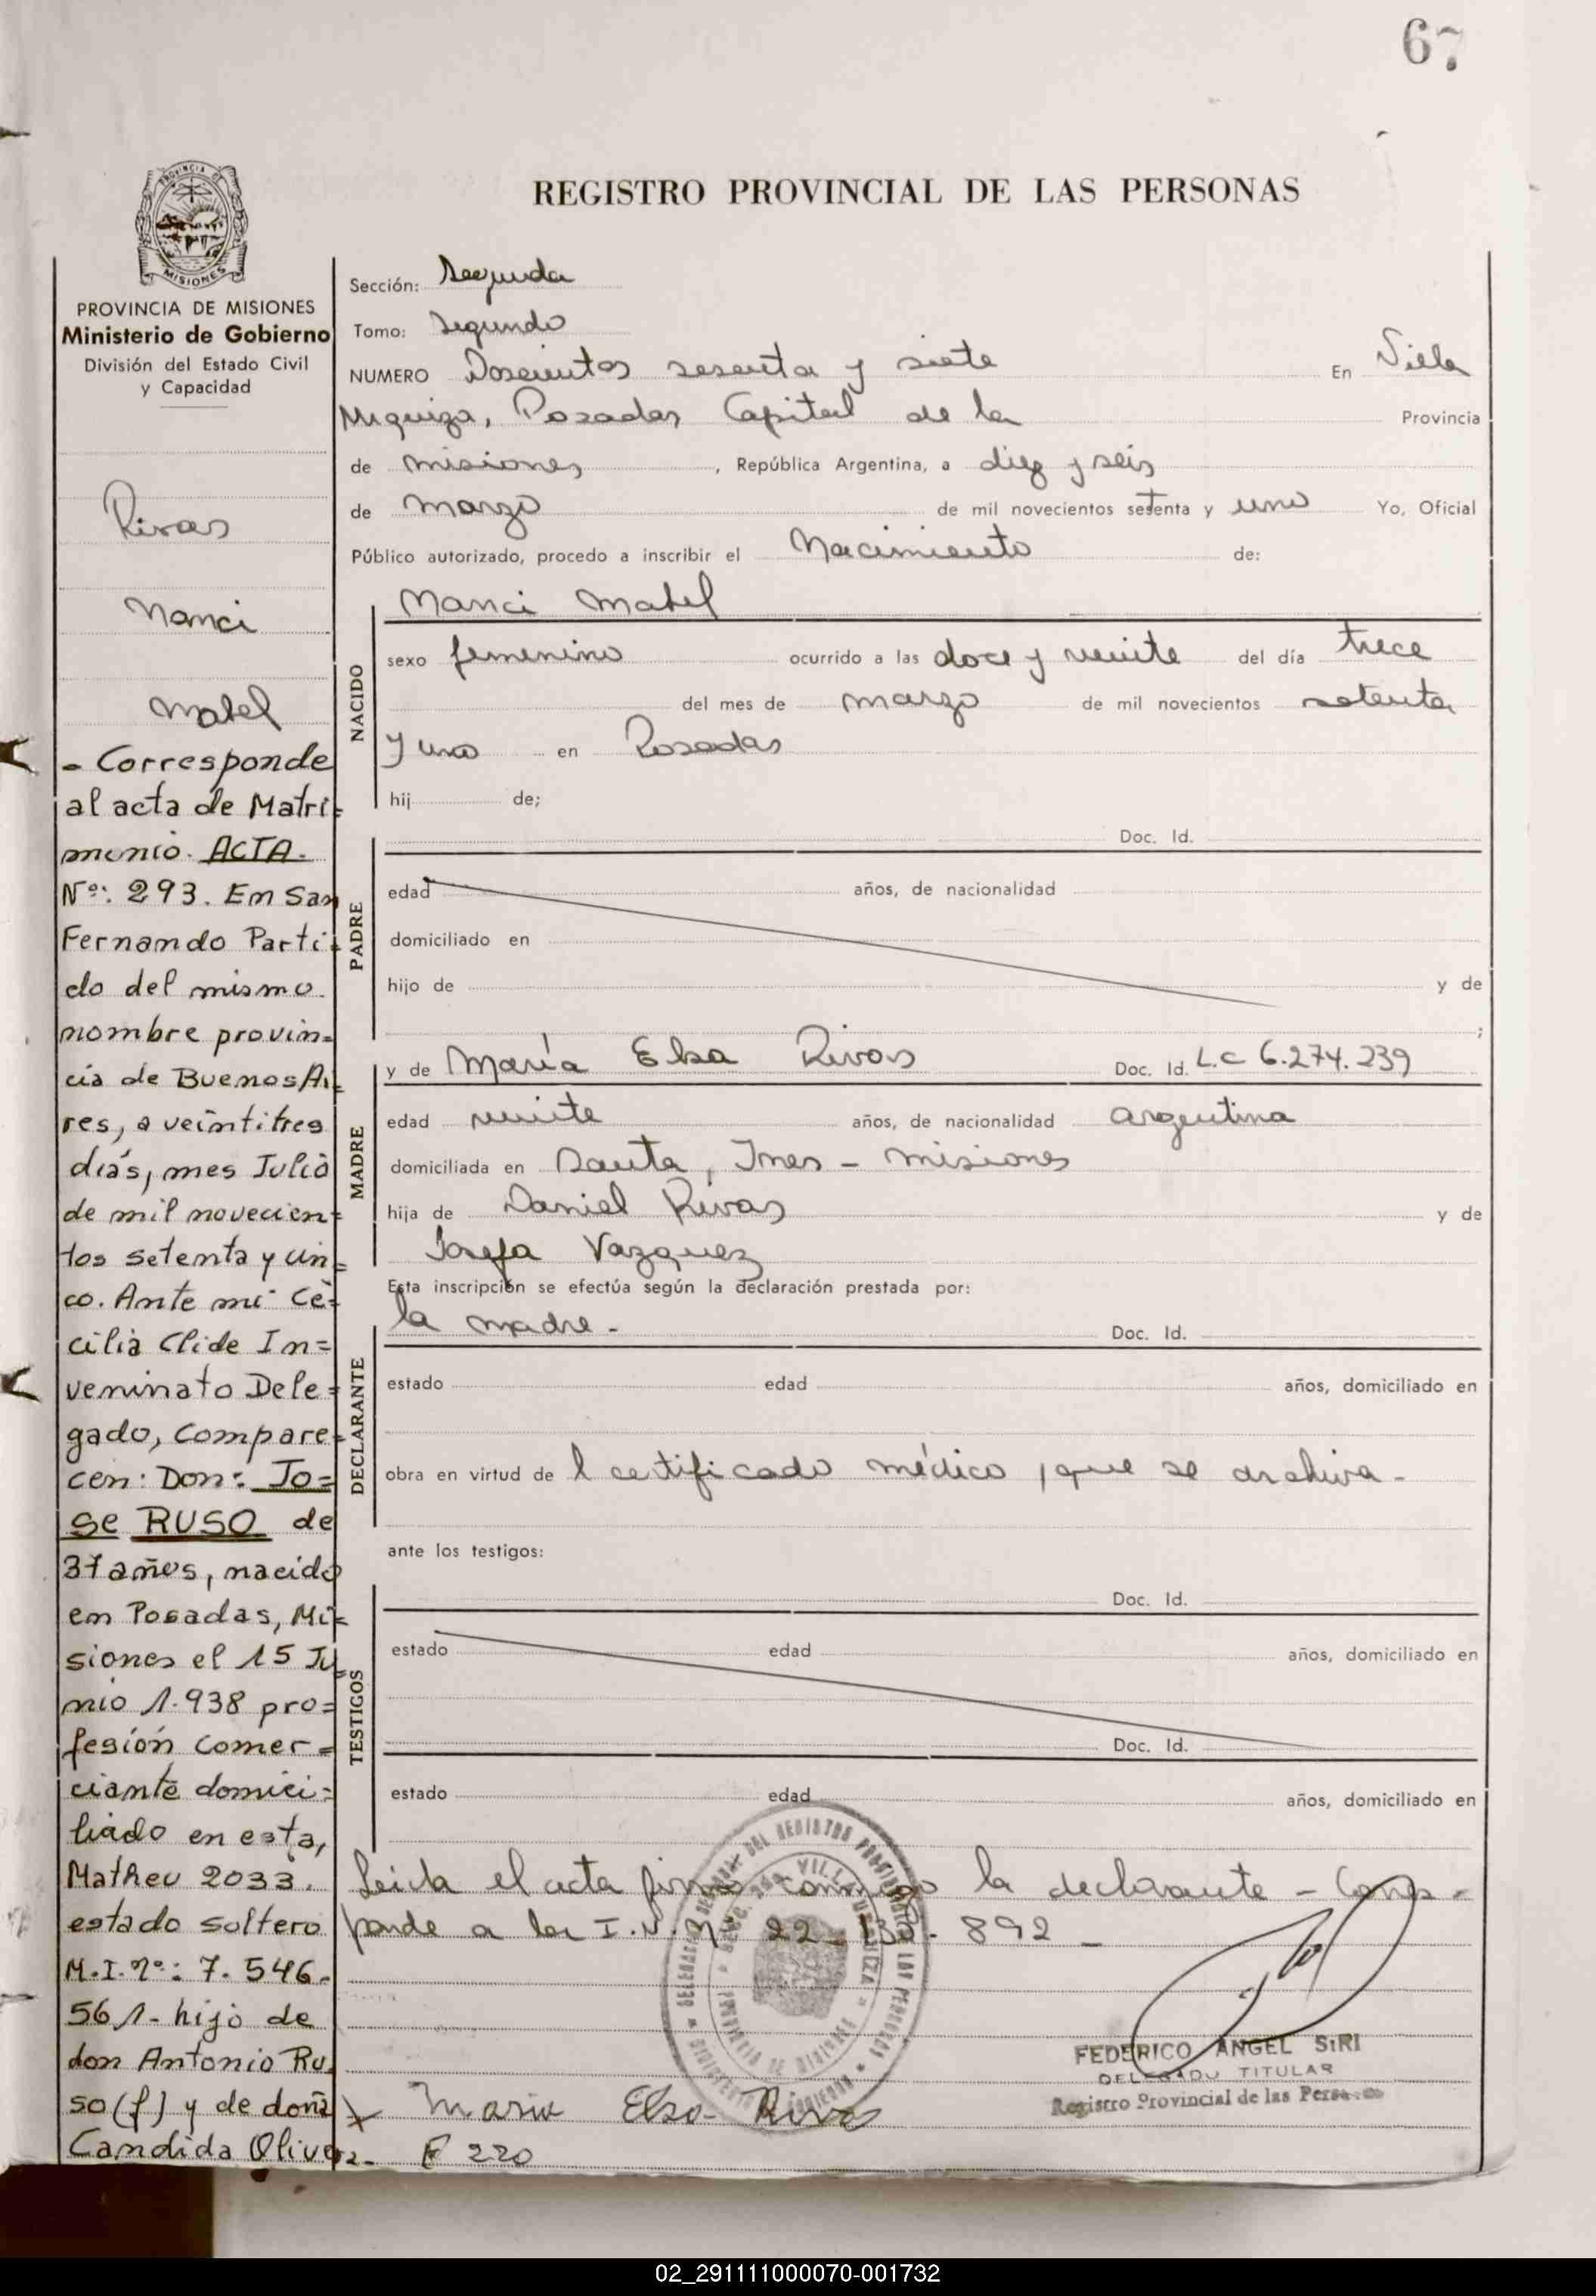 67
PROVINCIA DE
MISIONES
PROVINCIA DE MISIONES
Ministerio de Gobierno
División del Estado Civil
y Capacidad
REGISTRO PROVINCIAL DE LAS PERSONAS
Sección: Segunda
Tomo: Segundo
NUMERO Doscientos sesenta y siete En Villa
Urquiza, Posadas Capital de la Provincia
de misiones, República Argentina, a diez y seis
de marzo de mil novecientos setenta y uno Yo, Oficial
Público autorizado, procedo a inscribir el Nacimiento de:
NACIDO
Nanci Mabel
sexo femenino ocurrido a las doce y veinte del día trece
del mes de marzo de mil novecientos setenta
y uno en Posadas
hij de;
PADRE
Doc. Id.
edad años, de nacionalidad
domiciliado en
hijo de y de
;
MADRE
y de María Elsa Rivas Doc. Id. L.C 6.274.239
edad veinte años, de nacionalidad argentina
domiciliada en Santa, Ines - misiones
hija de Daniel Rivas y de
Josefa Vazquez
Esta inscripción se efectúa según la declaración prestada por:
DECLARANTE
la madre - Doc. Id.
estado edad años, domiciliado en
obra en virtud de l certificado médico, que se archiva -
ante los testigos:
TESTIGOS
Doc. Id.
estado edad años, domiciliado en
Doc. Id.
estado edad años, domiciliado en
Leida el acta firma conmigo la declarante - Corres-
ponde a la I.N. Nº 22- 892 -
FEDERICO ANGEL SIRI
DELEGADO TITULAR
Registro Provincial de las Personas
x Maria Elsa Rivas
F 220
Rivas
Nanci
Mabel
- Corresponde
al acta de Matri=
monio. ACTA.
Nº: 293. En San
Fernando Parti=
do del mismo
nombre provin=
cia de Buenos Ai=
res, a veintitres
dias, mes Julio
de mil novecien=
tos setenta y cin=
co. Ante mi Ce=
cilia Clide In=
veninato Dele=
gado, Compare=
cen: Don: Jo=
se RUSO de
37 años, nacido
en Posadas, Mi=
siones el 15 Ju=
nio 1.938 pro=
fesión comer=
ciante domici=
liado en esta,
Matheu 2033.
estado soltero
M.I.Nº: 7.546.
561- hijo de
don Antonio Ru=
so (f) y de doña
Candida Olivera.
02_291111000070-001732